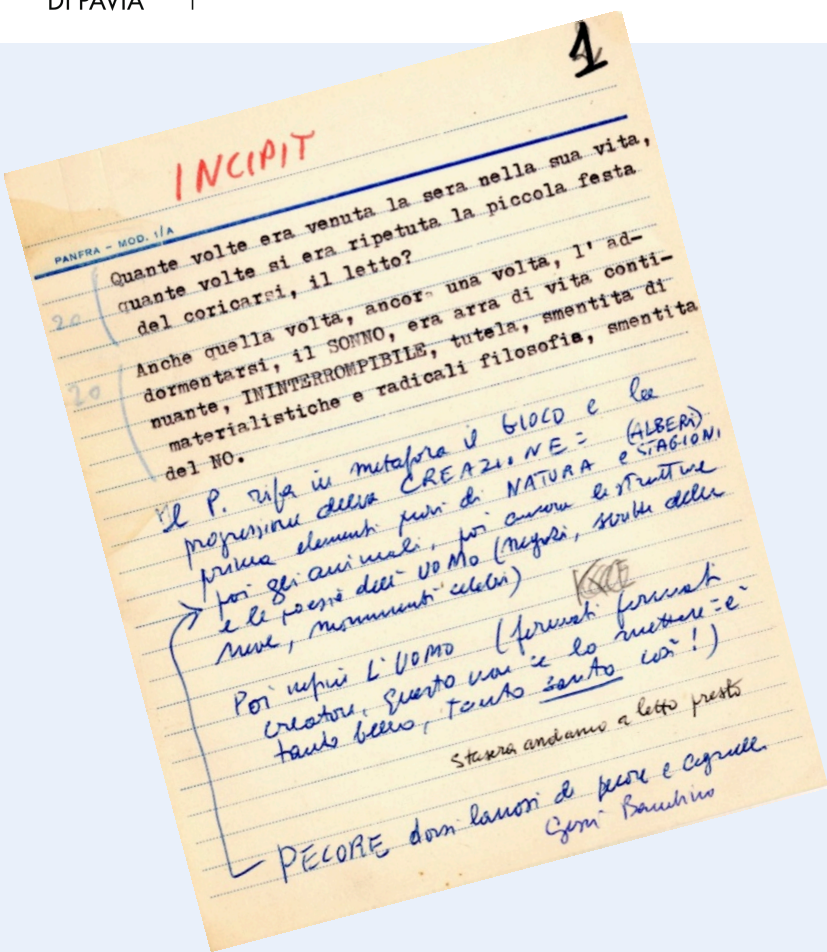 DI PAVIA
1
INCIPIT
PANFRA - MOD. 1/A
Quante volte era venuta la sera nella sua vita,
quante volte si era ripetuta la piccola festa
del coricarsi, il letto?
20
Anche quella volta, ancora una volta, l' ad-
dormentarsi, il SONNO, era arra di vita conti-
nuante, ININTERROMPIBILE, tutela, smentita di
materialistiche e radicali filosofie, smentita
del NO.
20
Il P. rifà in metafora il GIOCO e la
progressione della CREAZIONE =
prima elementi puri di NATURA e STAGIONI (ALBERI)
poi gli animali, poi ancora le strutture
e le poesie dell' UOMO (negozi, scritte della
neve, monumenti celebri)
Poi infine L'UOMO (fermati fermati
creatore, questo non ce lo mettere = è
tanto bello, tanto santo così!)
Stasera andiamo a letto presto
PECORE dorsi lanosi di pecore e agnelli
Gesù Bambino